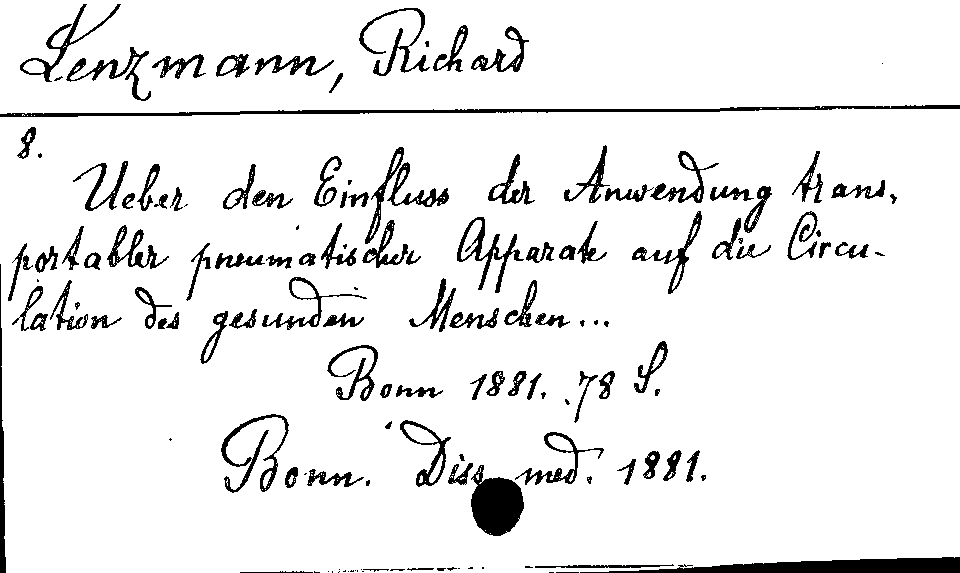 Lenzmann, Richard
8.
Ueber den Einfluss der Anwendung trans-
portabler pneumatischer Apparate auf die Circu-
lation des gesunden Menschen...
Bonn 1881. 78 S.
Bonn. Diss. med. 1881.